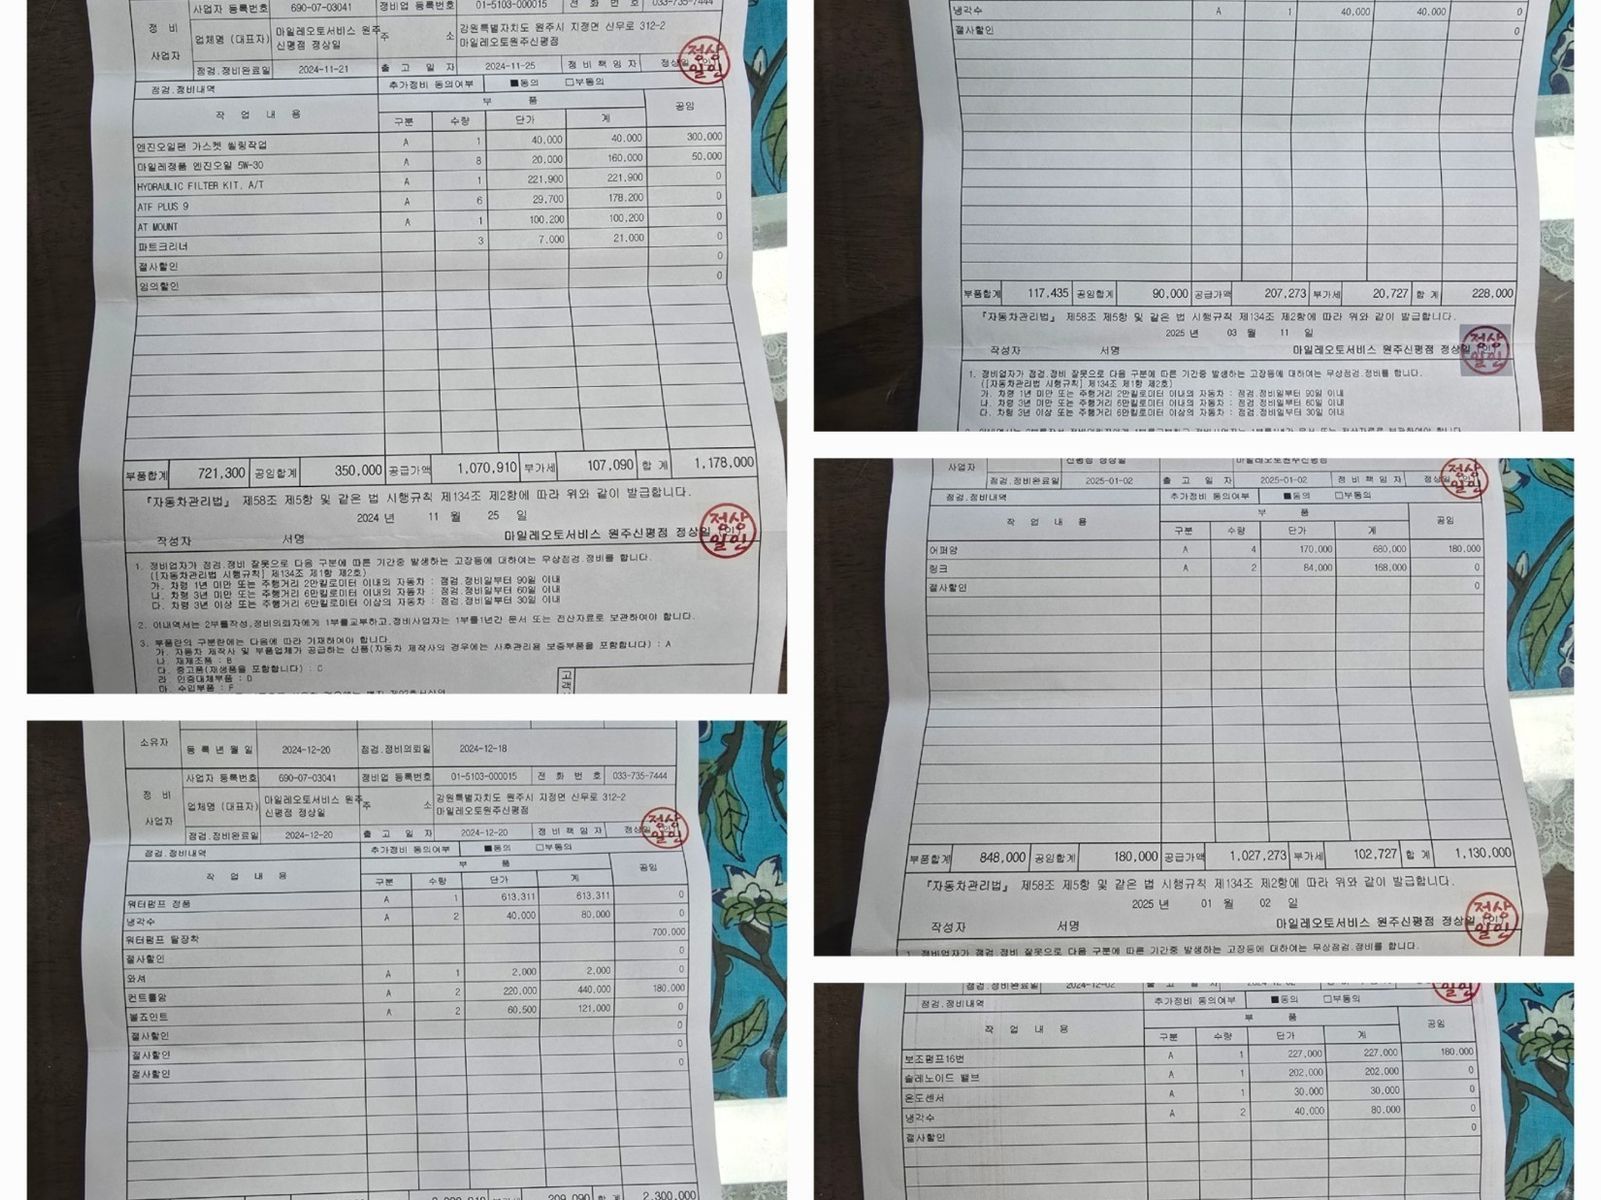 사업자 등록번호 690-07-03041 정비업 등록번호 01-5103-000015 전 화 번 호 033-735-7444
정 비
사업자
업체명 (대표자) 마일레오토서비스 원주 주 소 강원특별자치도 원주시 지정면 신무로 312-2
신평점 정상일 마일레오토원주신평점
점검.정비완료일 2024-11-21 출 고 일 자 2024-11-25 정 비 책 임 자 정상일 (인)
정상일인
점검.정비내역 추가정비 동의여부 ■동의 □부동의
작 업 내 용 부 품 공임
구분 수량 단가 계
엔진오일팬 가스켓 씰링작업 A 1 40,000 40,000 300,000
마일레정품 엔진오일 5W-30 A 8 20,000 160,000 50,000
HYDRAULIC FILTER KIT, A/T A 1 221,900 221,900 0
ATF PLUS 9 A 6 29,700 178,200 0
AT MOUNT A 1 100,200 100,200 0
파트크리너 3 7,000 21,000 0
절사할인 0
임의할인 0
부품합계 721,300 공임합계 350,000 공급가액 1,070,910 부가세 107,090 합 계 1,178,000
『자동차관리법』 제58조 제5항 및 같은 법 시행규칙 제134조 제2항에 따라 위와 같이 발급합니다.
2024 년 11 월 25 일
작성자 서명 마일레오토서비스 원주신평점 정상일 (인)
정상일인
1. 정비업자가 점검.정비 잘못으로 다음 구분에 따른 기간중 발생하는 고장등에 대하여는 무상점검.정비를 합니다.
([자동차관리법 시행규칙] 제134조 제1항 제2호)
가. 차령 1년 미만 또는 주행거리 2만킬로미터 이내의 자동차 : 점검.정비일부터 90일 이내
나. 차령 3년 미만 또는 주행거리 6만킬로미터 이내의 자동차 : 점검.정비일부터 60일 이내
다. 차령 3년 이상 또는 주행거리 6만킬로미터 이상의 자동차 : 점검.정비일부터 30일 이내
2. 이내역서는 2부를작성,정비의뢰자에게 1부를교부하고,정비사업자는 1부를1년간 문서 또는 전산자료로 보관하여야 합니다.
3. 부품란의 구분란에는 다음에 따라 기재하여야 합니다.
가. 자동차 제작사 및 부품업체가 공급하는 신품(자동차 제작사의 경우에는 사후관리용 보증부품을 포함합니다) : A
나. 재제조품 : B
다. 중고품(재생품을 포함합니다) : C
라. 인증대체부품 : D
마. 수입부품 : F
고객
소유자 등 록 년 월 일 2024-12-20 점검.정비의뢰일 2024-12-18
사업자 등록번호 690-07-03041 정비업 등록번호 01-5103-000015 전 화 번 호 033-735-7444
정 비
사업자
업체명 (대표자) 마일레오토서비스 원주 주 소 강원특별자치도 원주시 지정면 신무로 312-2
신평점 정상일 마일레오토원주신평점
점검.정비완료일 2024-12-20 출 고 일 자 2024-12-20 정 비 책 임 자 정상일 (인)
정상일인
점검.정비내역 추가정비 동의여부 ■동의 □부동의
작 업 내 용 부 품 공임
구분 수량 단가 계
워터펌프 정품 A 1 613,311 613,311 0
냉각수 A 2 40,000 80,000 0
워터펌프 탈장착 700,000
절사할인 0
와셔 A 1 2,000 2,000 0
컨트롤암 A 2 220,000 440,000 180,000
볼죠인트 A 2 60,500 121,000 0
절사할인 0
절사할인 0
절사할인 0
209,090 합 계 2,300,000
냉각수 A 1 40,000 40,000 0
절사할인 0
부품합계 117,435 공임합계 90,000 공급가액 207,273 부가세 20,727 합 계 228,000
『자동차관리법』 제58조 제5항 및 같은 법 시행규칙 제134조 제2항에 따라 위와 같이 발급합니다.
2025 년 03 월 11 일
작성자 서명 마일레오토서비스 원주신평점 정상일 (인)
정상일인
1. 정비업자가 점검.정비 잘못으로 다음 구분에 따른 기간중 발생하는 고장등에 대하여는 무상점검.정비를 합니다.
([자동차관리법 시행규칙] 제134조 제1항 제2호)
가. 차령 1년 미만 또는 주행거리 2만킬로미터 이내의 자동차 : 점검.정비일부터 90일 이내
나. 차령 3년 미만 또는 주행거리 6만킬로미터 이내의 자동차 : 점검.정비일부터 60일 이내
다. 차령 3년 이상 또는 주행거리 6만킬로미터 이상의 자동차 : 점검.정비일부터 30일 이내
사업자 신평점 정상일 마일레오토원주신평점
점검.정비완료일 2025-01-02 출 고 일 자 2025-01-02 정 비 책 임 자 정상일
정상일인
점검.정비내역 추가정비 동의여부 ■동의 □부동의
작 업 내 용 부 품 공임
구분 수량 단가 계
어퍼암 A 4 170,000 680,000 180,000
링크 A 2 84,000 168,000 0
절사할인 0
부품합계 848,000 공임합계 180,000 공급가액 1,027,273 부가세 102,727 합 계 1,130,000
『자동차관리법』 제58조 제5항 및 같은 법 시행규칙 제134조 제2항에 따라 위와 같이 발급합니다.
2025 년 01 월 02 일
작성자 서명 마일레오토서비스 원주신평점 정상일 (인)
정상일인
1. 정비업자가 점검.정비 잘못으로 다음 구분에 따른 기간중 발생하는 고장등에 대하여는 무상점검.정비를 합니다.
점검.정비완료일 2024-12-02 출 고 일 자 정 비 책 임 자
점검.정비내역 추가정비 동의여부 ■동의 □부동의
작 업 내 용 부 품 공임
구분 수량 단가 계
보조펌프16번 A 1 227,000 227,000 180,000
솔레노이드 밸브 A 1 202,000 202,000 0
온도센서 A 1 30,000 30,000 0
냉각수 A 2 40,000 80,000 0
절사할인 0